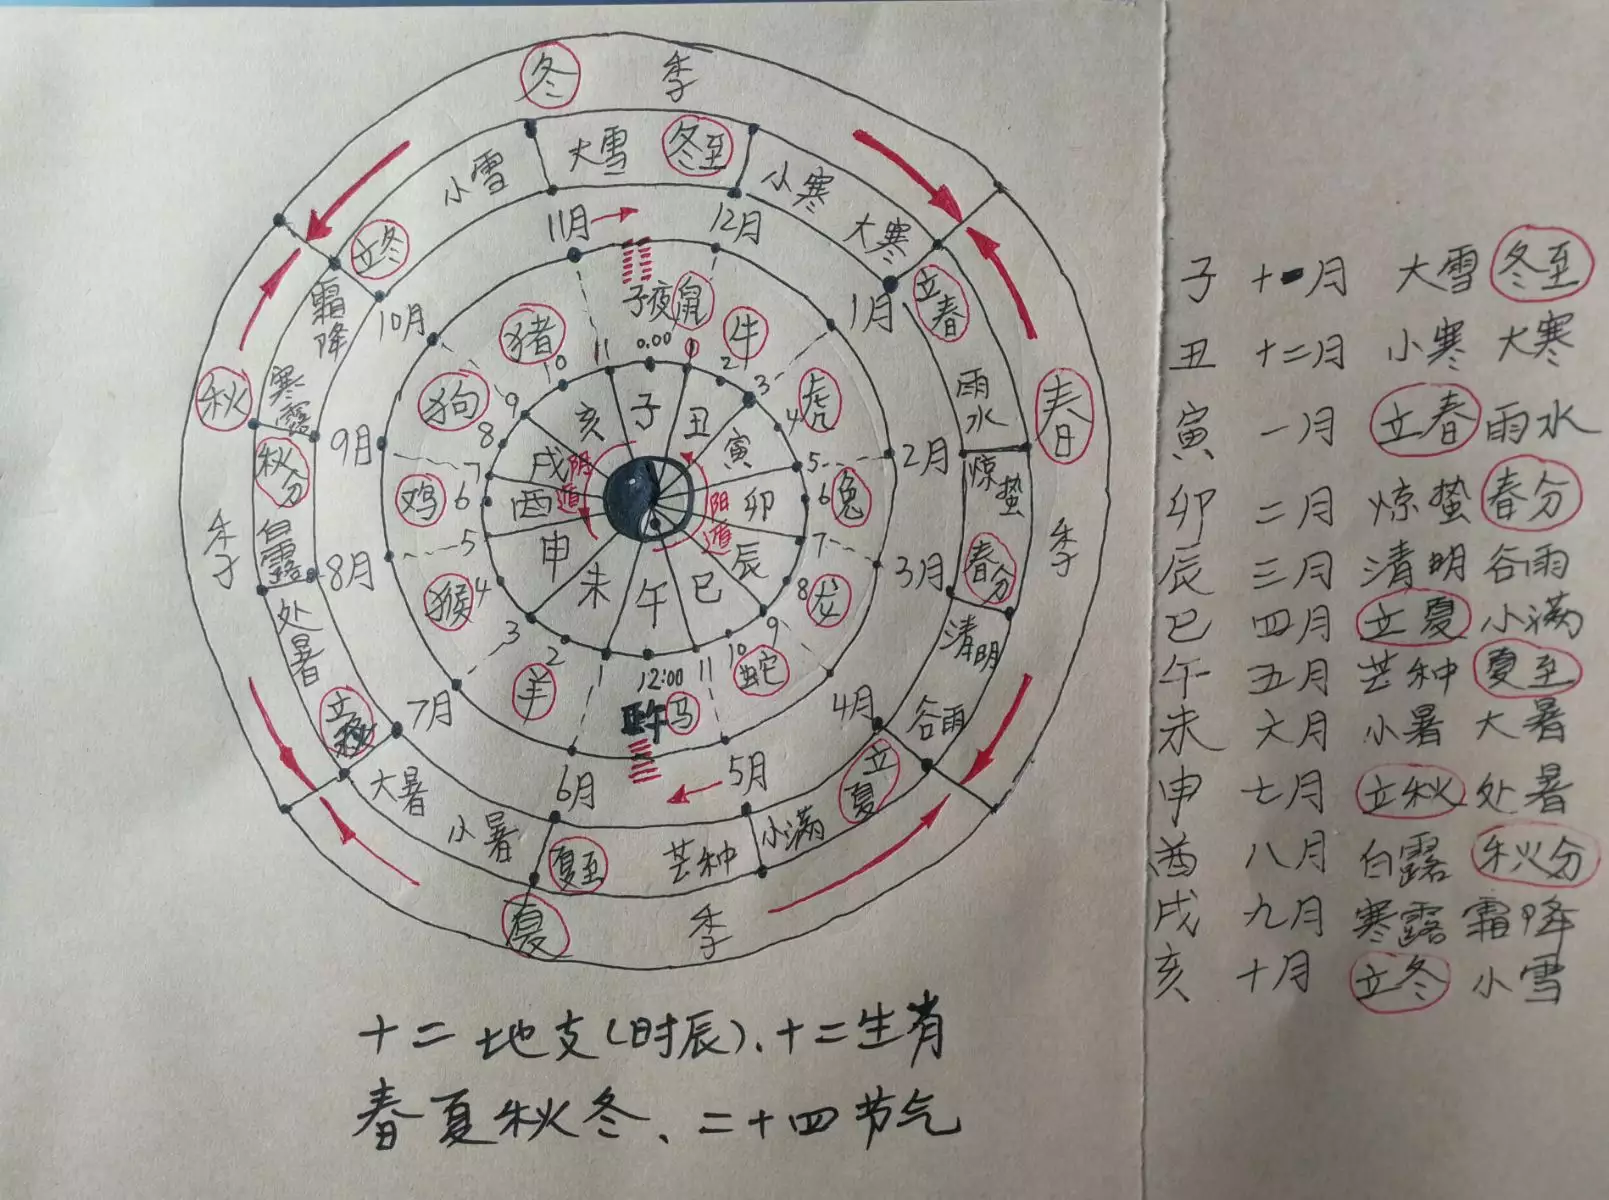 冬 季
春 季
夏 季
秋 季
大雪 冬至
小寒 大寒
立春 雨水
惊蛰 春分
清明 谷雨
立夏 小满
芒种 夏至
小暑 大暑
立秋 处暑
白露 秋分
寒露 霜降
立冬 小雪
11月 12月 1月 2月 3月 4月 5月 6月 7月 8月 9月 10月
子夜 鼠 牛 虎 兔 龙 蛇 马 羊 猴 鸡 狗 猪
正午
0.00 1 2 3 4 5 6 7 8 9 10 11 12:00 1 2 3 4 5 6 7 8 9 10 11
子 丑 寅 卯 辰 巳 午 未 申 酉 戌 亥
阳遁
阴遁
十二地支(时辰)、十二生肖
春夏秋冬、二十四节气
子 十一月 大雪 冬至
丑 十二月 小寒 大寒
寅 一月 立春 雨水
卯 二月 惊蛰 春分
辰 三月 清明 谷雨
巳 四月 立夏 小满
午 五月 芒种 夏至
未 六月 小暑 大暑
申 七月 立秋 处暑
酉 八月 白露 秋分
戌 九月 寒露 霜降
亥 十月 立冬 小雪